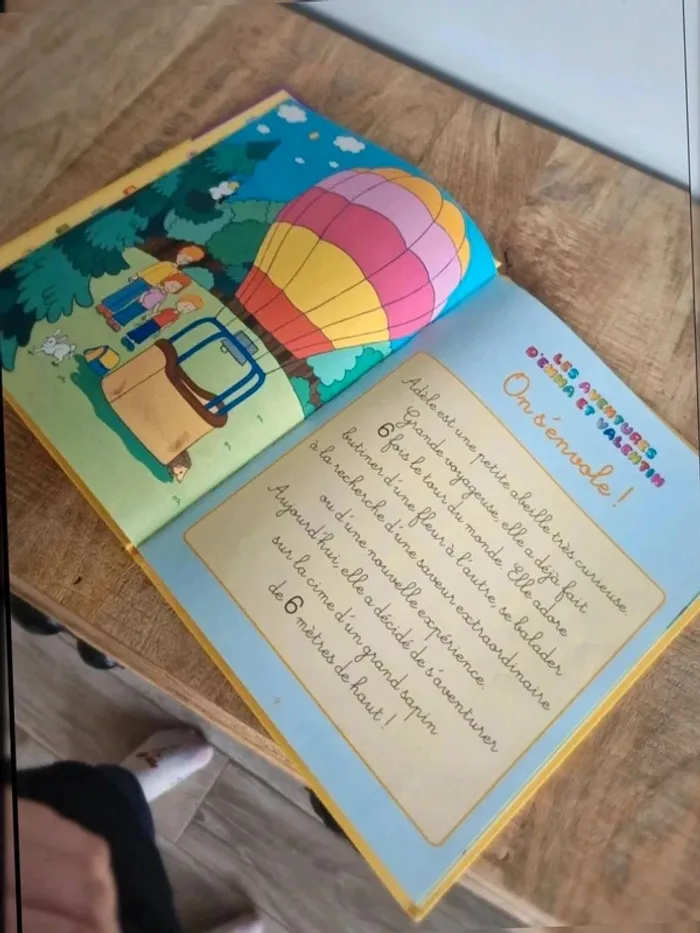 LES AVENTURES
D'EMMA ET VALENTIN
On s'envole !
Adèle est une petite abeille très curieuse.
Grande voyageuse, elle a déjà fait
6 fois le tour du monde. Elle adore
butiner d'une fleur à l'autre, se balader
à la recherche d'une saveur extraordinaire
ou d'une nouvelle expérience.
Aujourd'hui, elle a décidé de s'aventurer
sur la cime d'un grand sapin
de 6 mètres de haut !